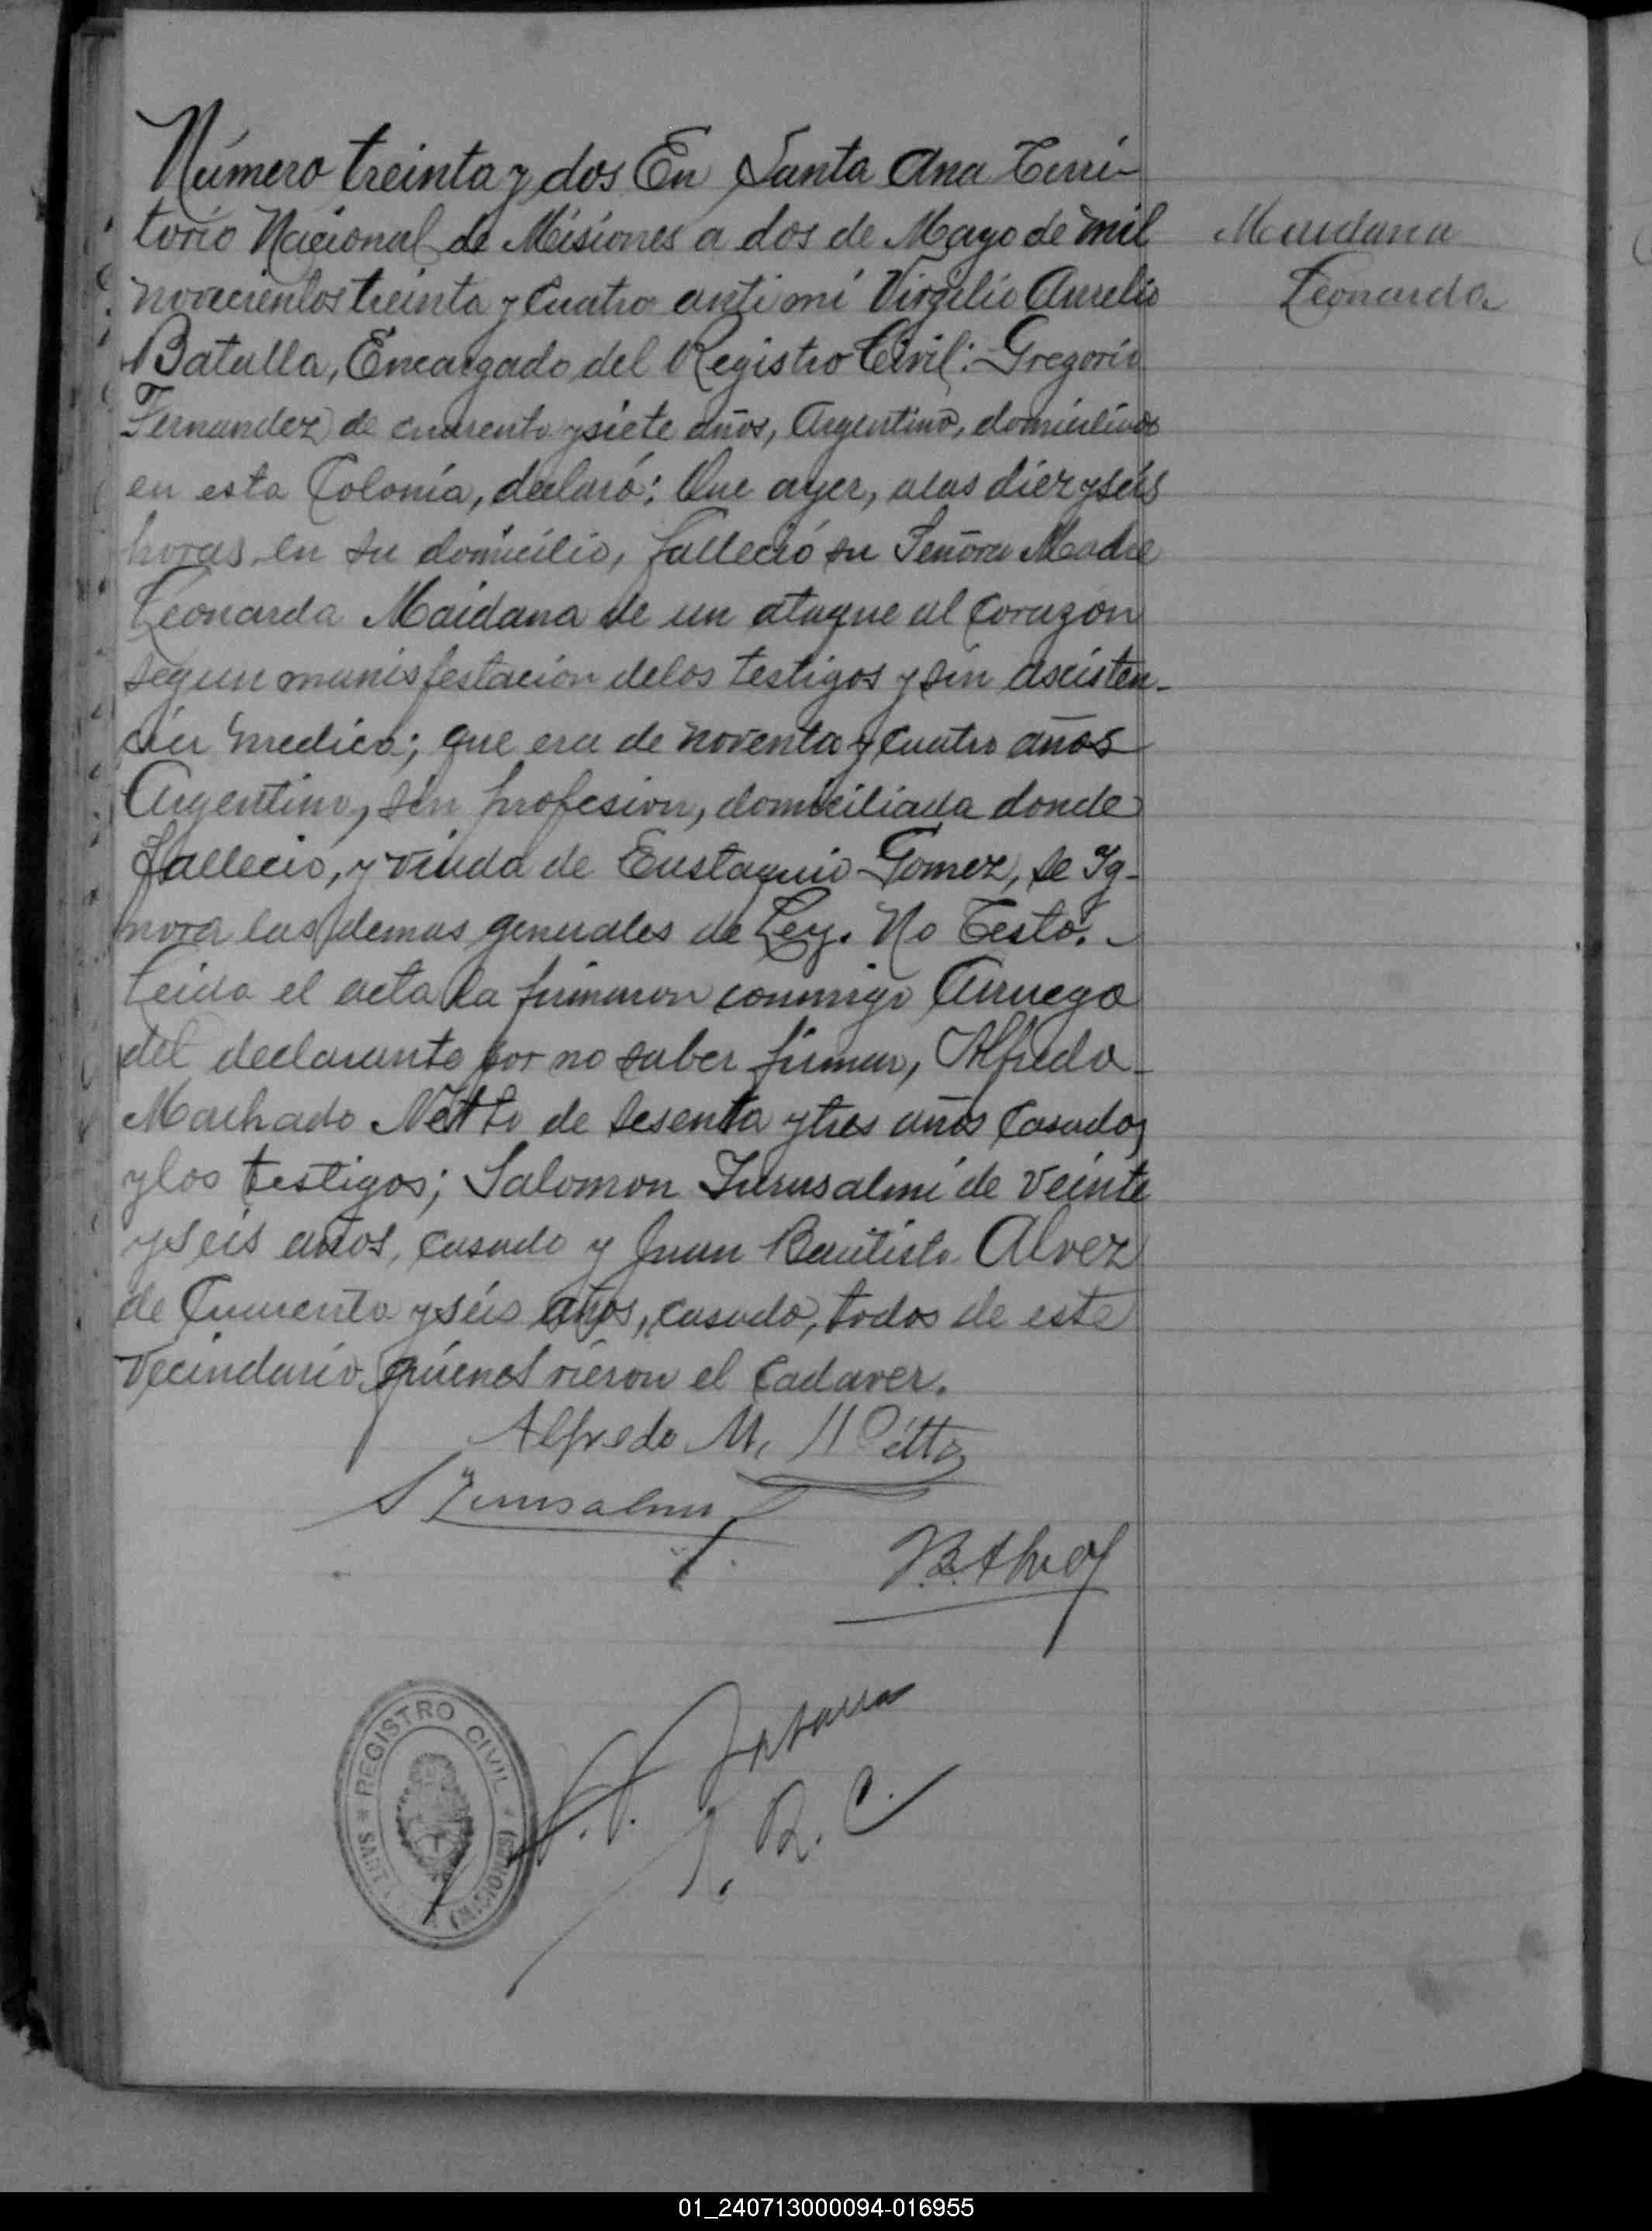 Número treinta y dos En Santa Ana Terri-
torio Nacional de Misiones a dos de Mayo de mil
novecientos treinta y cuatro anti mi Virgilio Aurelio
Batalla, Encargado del Registro Civil: Gregorio
Fernandez de cuarenta y siete años, Argentino, domiciliado
en esta Colonia, declaró: Que ayer, alas diez y seis
horas en su domicilio, falleció su Señora Madre
Leonarda Maidana de un ataque al corazón
segun manisfestación delos testigos y sin ascisten-
cia medica; que era de noventa y cuatro años
Argentina, sin profesion, domiciliada donde
falleció, y viuda de Eustaquio Gomez, se Ig-
nora las demas generales de Ley. No Testó.
Leida el acta la firmaron conmigo Arruego
del declarante por no saber firmar, Alfredo
Machado Netto de sesenta y tres años casado,
y los testigos; Salomon Jerusalmi de veinte
y seis años, casado y Juan Bautista Alvez
de Cuarenta y seis años, casado, todos de este
Vecindario quienes vieron el cadaver.
Maidana
Leonarda
Alfredo M. Netto
S Jerusalmi
B. Alvez
V. A. Batalla
E. R. C.
REGISTRO CIVIL
SANTA ANA (MISIONES)
01_240713000094-016955